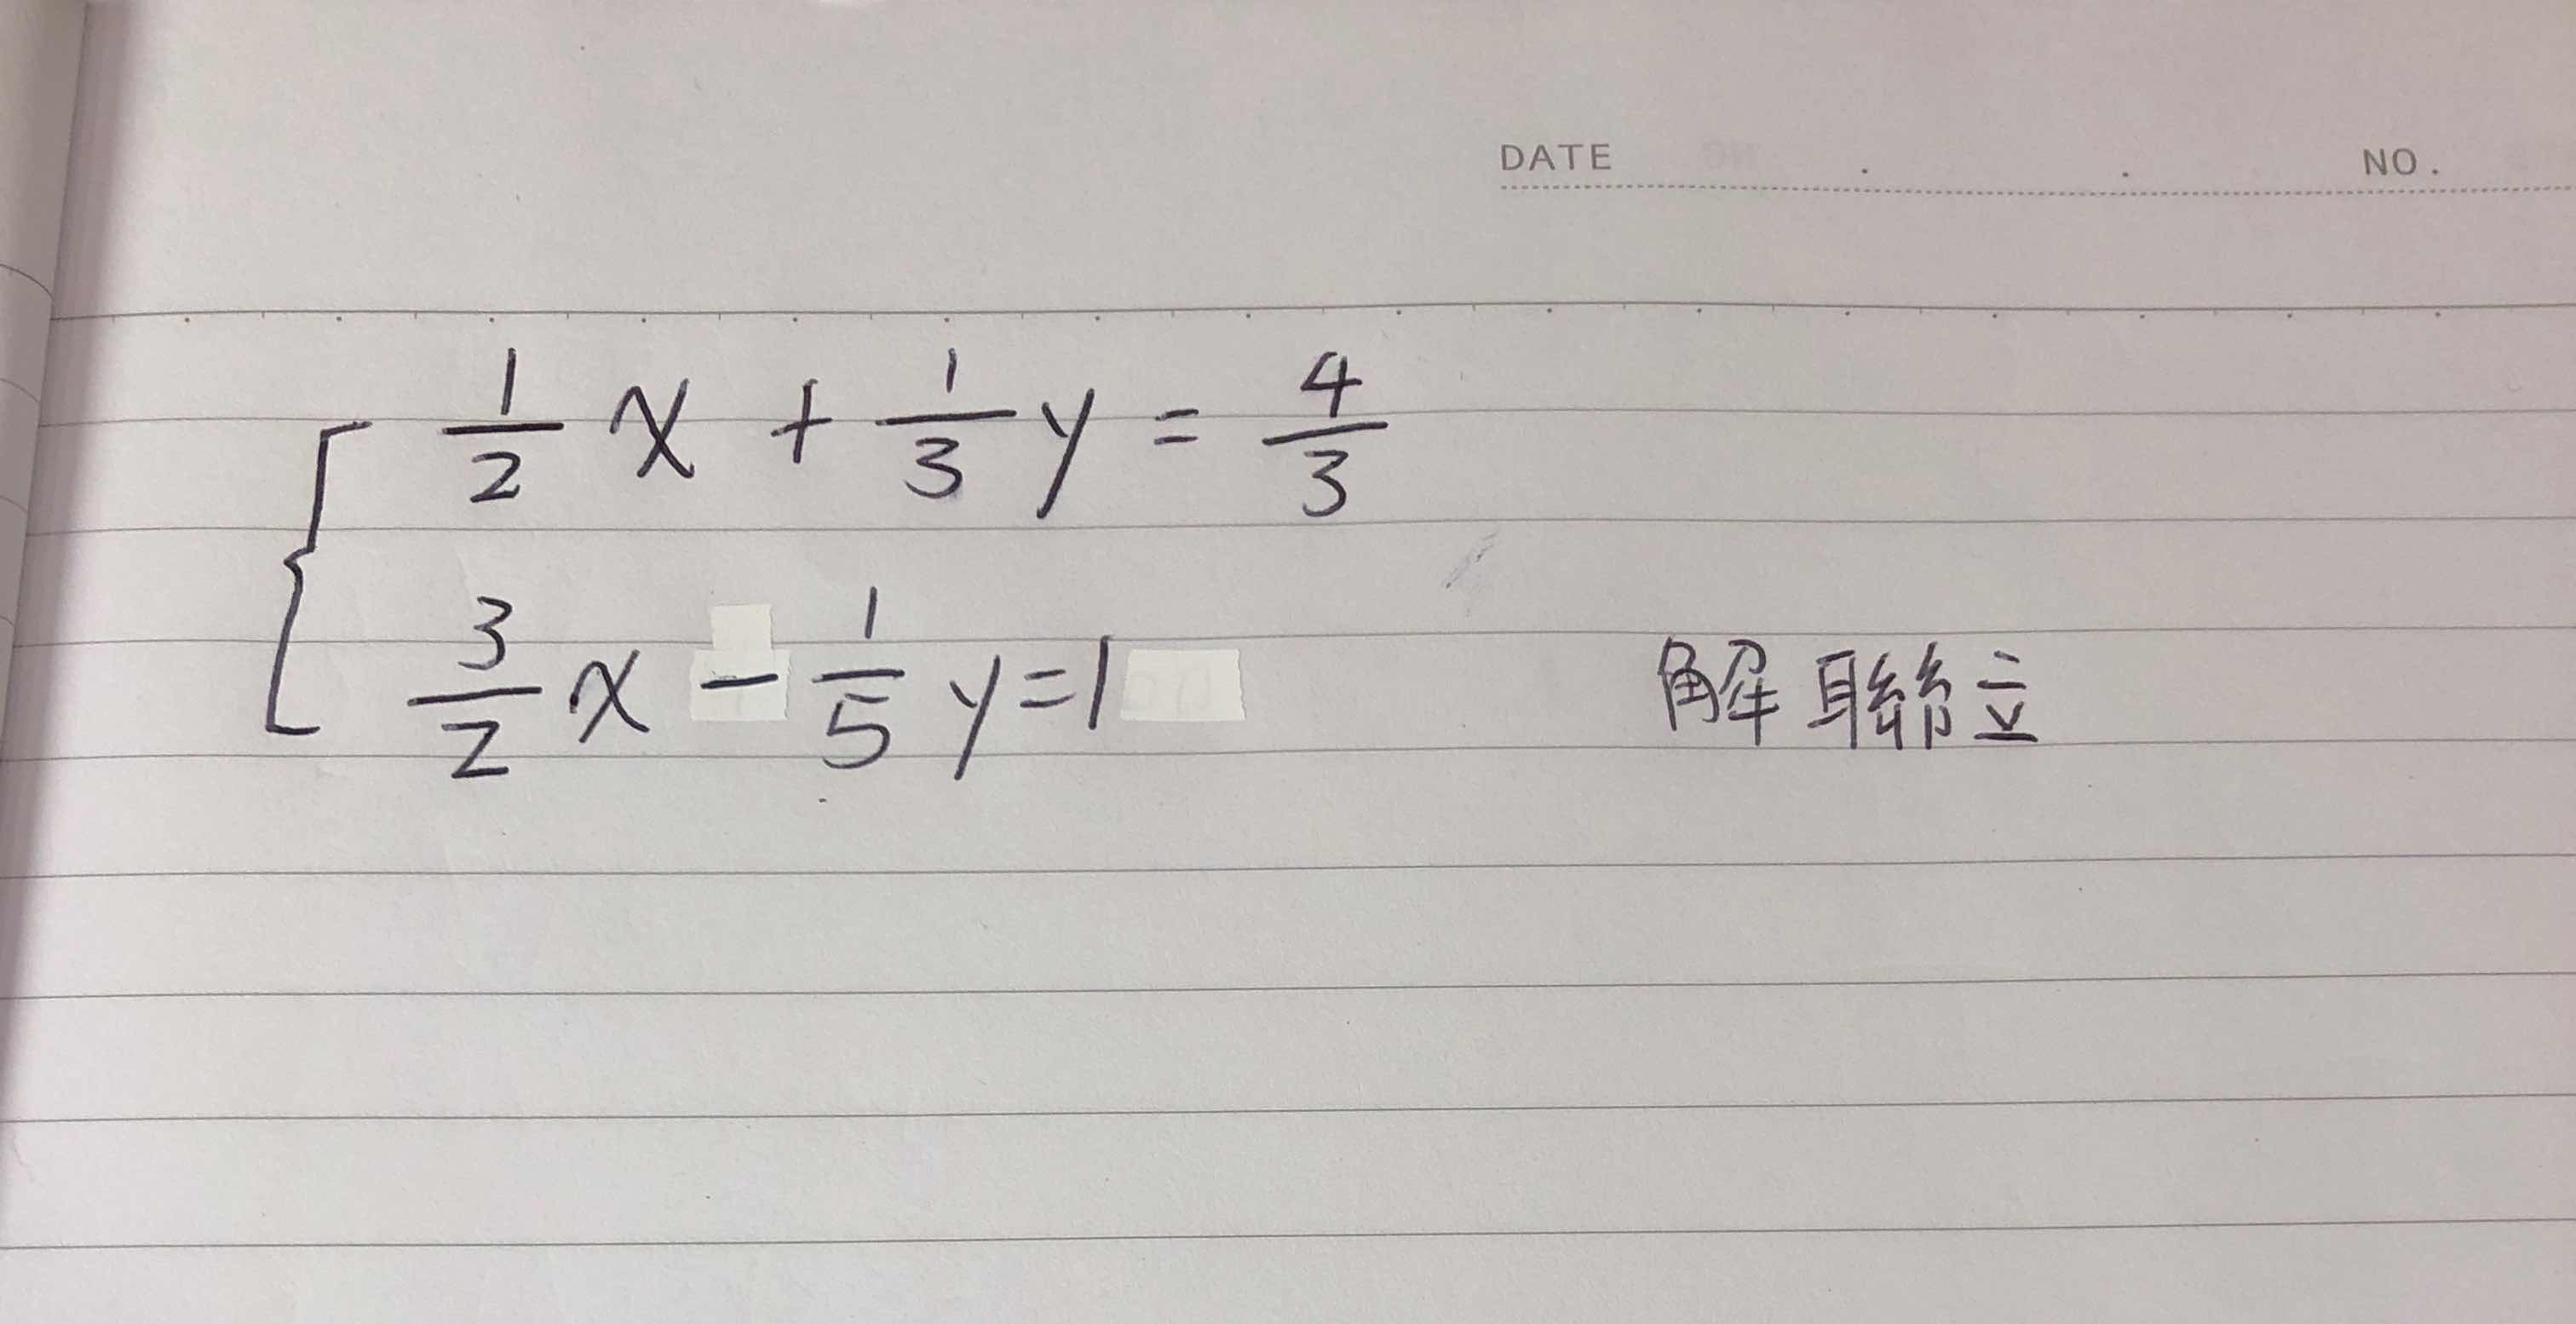 DATE . . NO.
1/2 x + 1/3 y = 4/3
3/2 x - 1/5 y = 1
解聯立